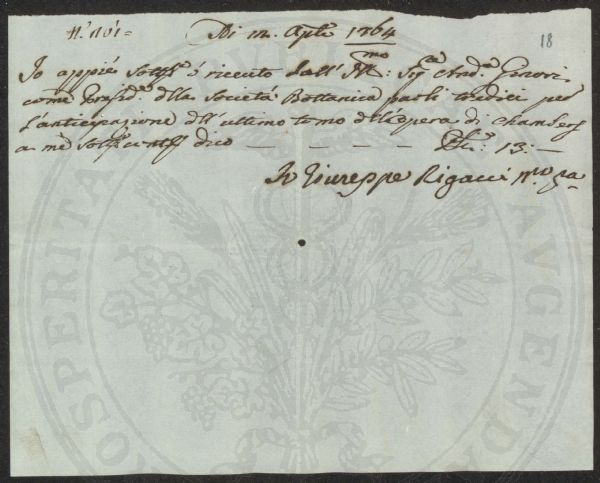 N.° 101=
Di 12. Aple 1764
18
Io appiè Sottỹ ò riceuto dall' Ill:mo Sig.e And.a Ginori
come Presid.e della Società Bottanica paoli tredici per
l'anticipazione dll'ultimo tomo dell'opera di Chambers
a mè dico — — — — — 13: —
Io Giuseppe Rigacci
PROSPERITATI AUGENDAE